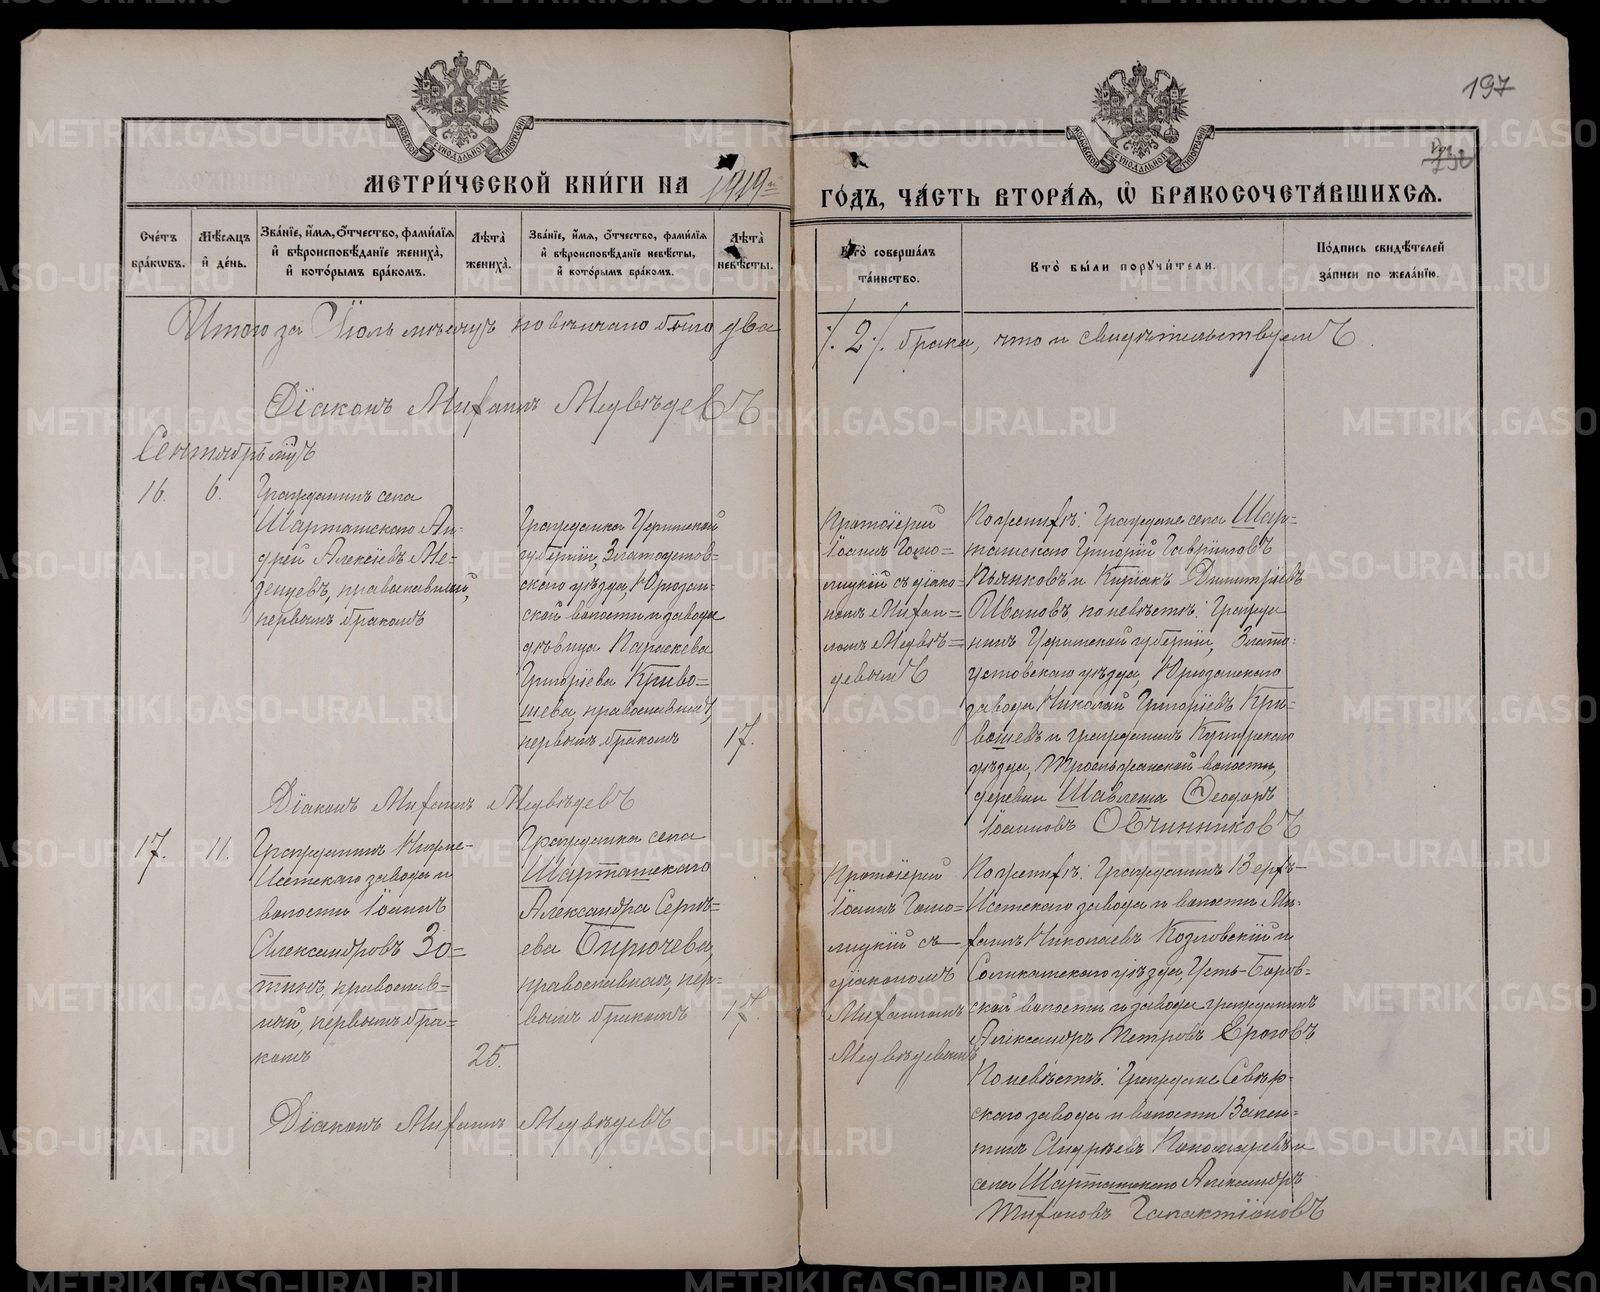 197
МЕТРИ́ЧЕСКОЙ КНИ́ГИ НА 1919
ГО́ДЪ, ЧА́СТЬ ВТОРА́Я, Ѡ҆ БРАКОСОЧЕТА́ВШИХСЯ.
Сче́тъ бра́кѡвъ.
Мѣ́сяцъ и҆ де́нь.
Зва́нїе, и҆́мя, ѻ҆́тчество, фами́лїя и҆ вѣроисповѣ́данїе жениха̀, и҆ кото́рымъ бра́комъ.
Лѣ́та̀ жениха̀.
Зва́нїе, и҆́мя, ѻ҆́тчество, фами́лїя и҆ вѣроисповѣ́данїе невѣ́сты, и҆ кото́рымъ бра́комъ.
Лѣ́та̀ невѣ́сты.
Кто̀ соверша́лъ та́инство.
Кто̀ бы́ли поручи́тели.
По́дпись свидѣ́телей за́писи по жела́нїю.
Итого за Іюль мѣсяцъ повѣнчано было два /.2./ брака, что и свидѣтельствуемъ
Діаконъ Миѳаилъ Медвѣдевъ
Сентябрь мцъ
16.
6.
Гражданинъ села
Шарташскаго Ан-
дрей Алексѣевъ Ме-
зенцевъ, православный,
первымъ бракомъ
Гражданка Уфимской
губерніи, Златоустов-
скаго уѣзда, Юрюзан-
ской волости и завода
дѣвица Параскева
Григоріева Криво-
шева, православная,
первымъ бракомъ
17.
Протоіерей
Іоаннъ
съ діако-
номъ
Медвѣ=
девымъ
По женихѣ: Граждане села Шар=
ташскаго Григорій Гавриловъ
Пьянковъ и Киріакъ Димитріевъ
Ивановъ, по невѣстѣ: Гражда
нинъ Уфимской губерніи, Злато-
устовскаго уѣзда, Юрюзанскаго
завода Николай Григоріевъ Кри-
вошевъ и гражданинъ Кунгурскаго
уѣзда, волости,
деревни Шавлеша Ѳеодоръ
Іоанновъ Овчинниковъ
Діаконъ Медвѣдевъ
17.
11.
Гражданинъ Нижне-
Исетскаго завода и
волости Іоаннъ
Александровъ Зо=
тинъ, православ=
ный, первымъ бра=
комъ
25.
Гражданка села
Шарташскаго
Александра Сергѣ=
ева Бирючева,
православная, пер-
вымъ бракомъ
17.
Протоіерей
Іоаннъ
съ
діакономъ
Медвѣдевымъ
По женихѣ: Гражданинъ Верхъ-
Исетскаго завода и волости
Николаевъ Козловскій и
Соликамскаго уѣзда, Усть-Боров-
ской волости и завода гражданинъ
Александръ Петровъ
По невѣстѣ: Граждане
скаго завода и волости Вален-
тинъ Андреевъ Пономаревъ и
села Шарташскаго Александръ
Галактіоновъ
Діаконъ Медвѣдевъ
METRIKI.GASO-URAL.RU